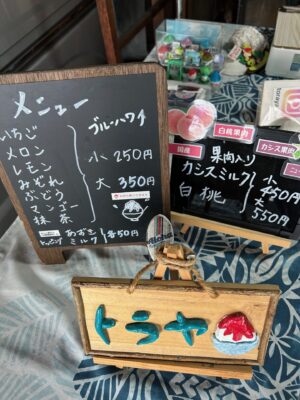 メニュー
いちご
メロン
レモン
みぞれ
ぶどう
マンゴー
抹茶
ブルーハワイ
小 250円
大 350円
トッピング
あずき
ミルク
各50円
白桃果肉
カシス果肉
国産
果肉入り
カシスミルク
白桃
小 450円
大 550円
トラヤ